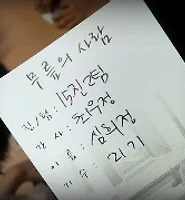 무릎의 사람
진/팀 : 15진 2팀
강 사 : 최우정
이 름 : 심희정
기 수 : 21기